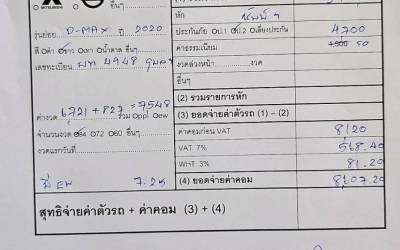 MITSUBISHI อื่นๆ
รุ่นย่อย D-MAX ปี 2020
สี ดำ เทา น้ำตาล อื่นๆ
เลขทะเบียน 4948
หัก
ประกันภัย ป.1 ป.2 เปลี่ยนประกัน 4,700
ค่าธรรมเนียม 50
งวดล่วงหน้า งวด
อื่นๆ
(2) รวมรายการหัก
ค่างวด 6,721 + 827 = 7548 รวม ppi ew
จำนวนงวด 84 72 60 อื่นๆ
งวดแรกวันที่
(3) ยอดจ่ายค่าตัวรถ (1) – (2)
ค่าคอมก่อน VAT 8120
VAT 7% 568.40
WHT 3% 81.20
7.25
(4) ยอดจ่ายค่าคอม 8,607.20
สุทธิจ่ายค่าตัวรถ + ค่าคอม (3) + (4)